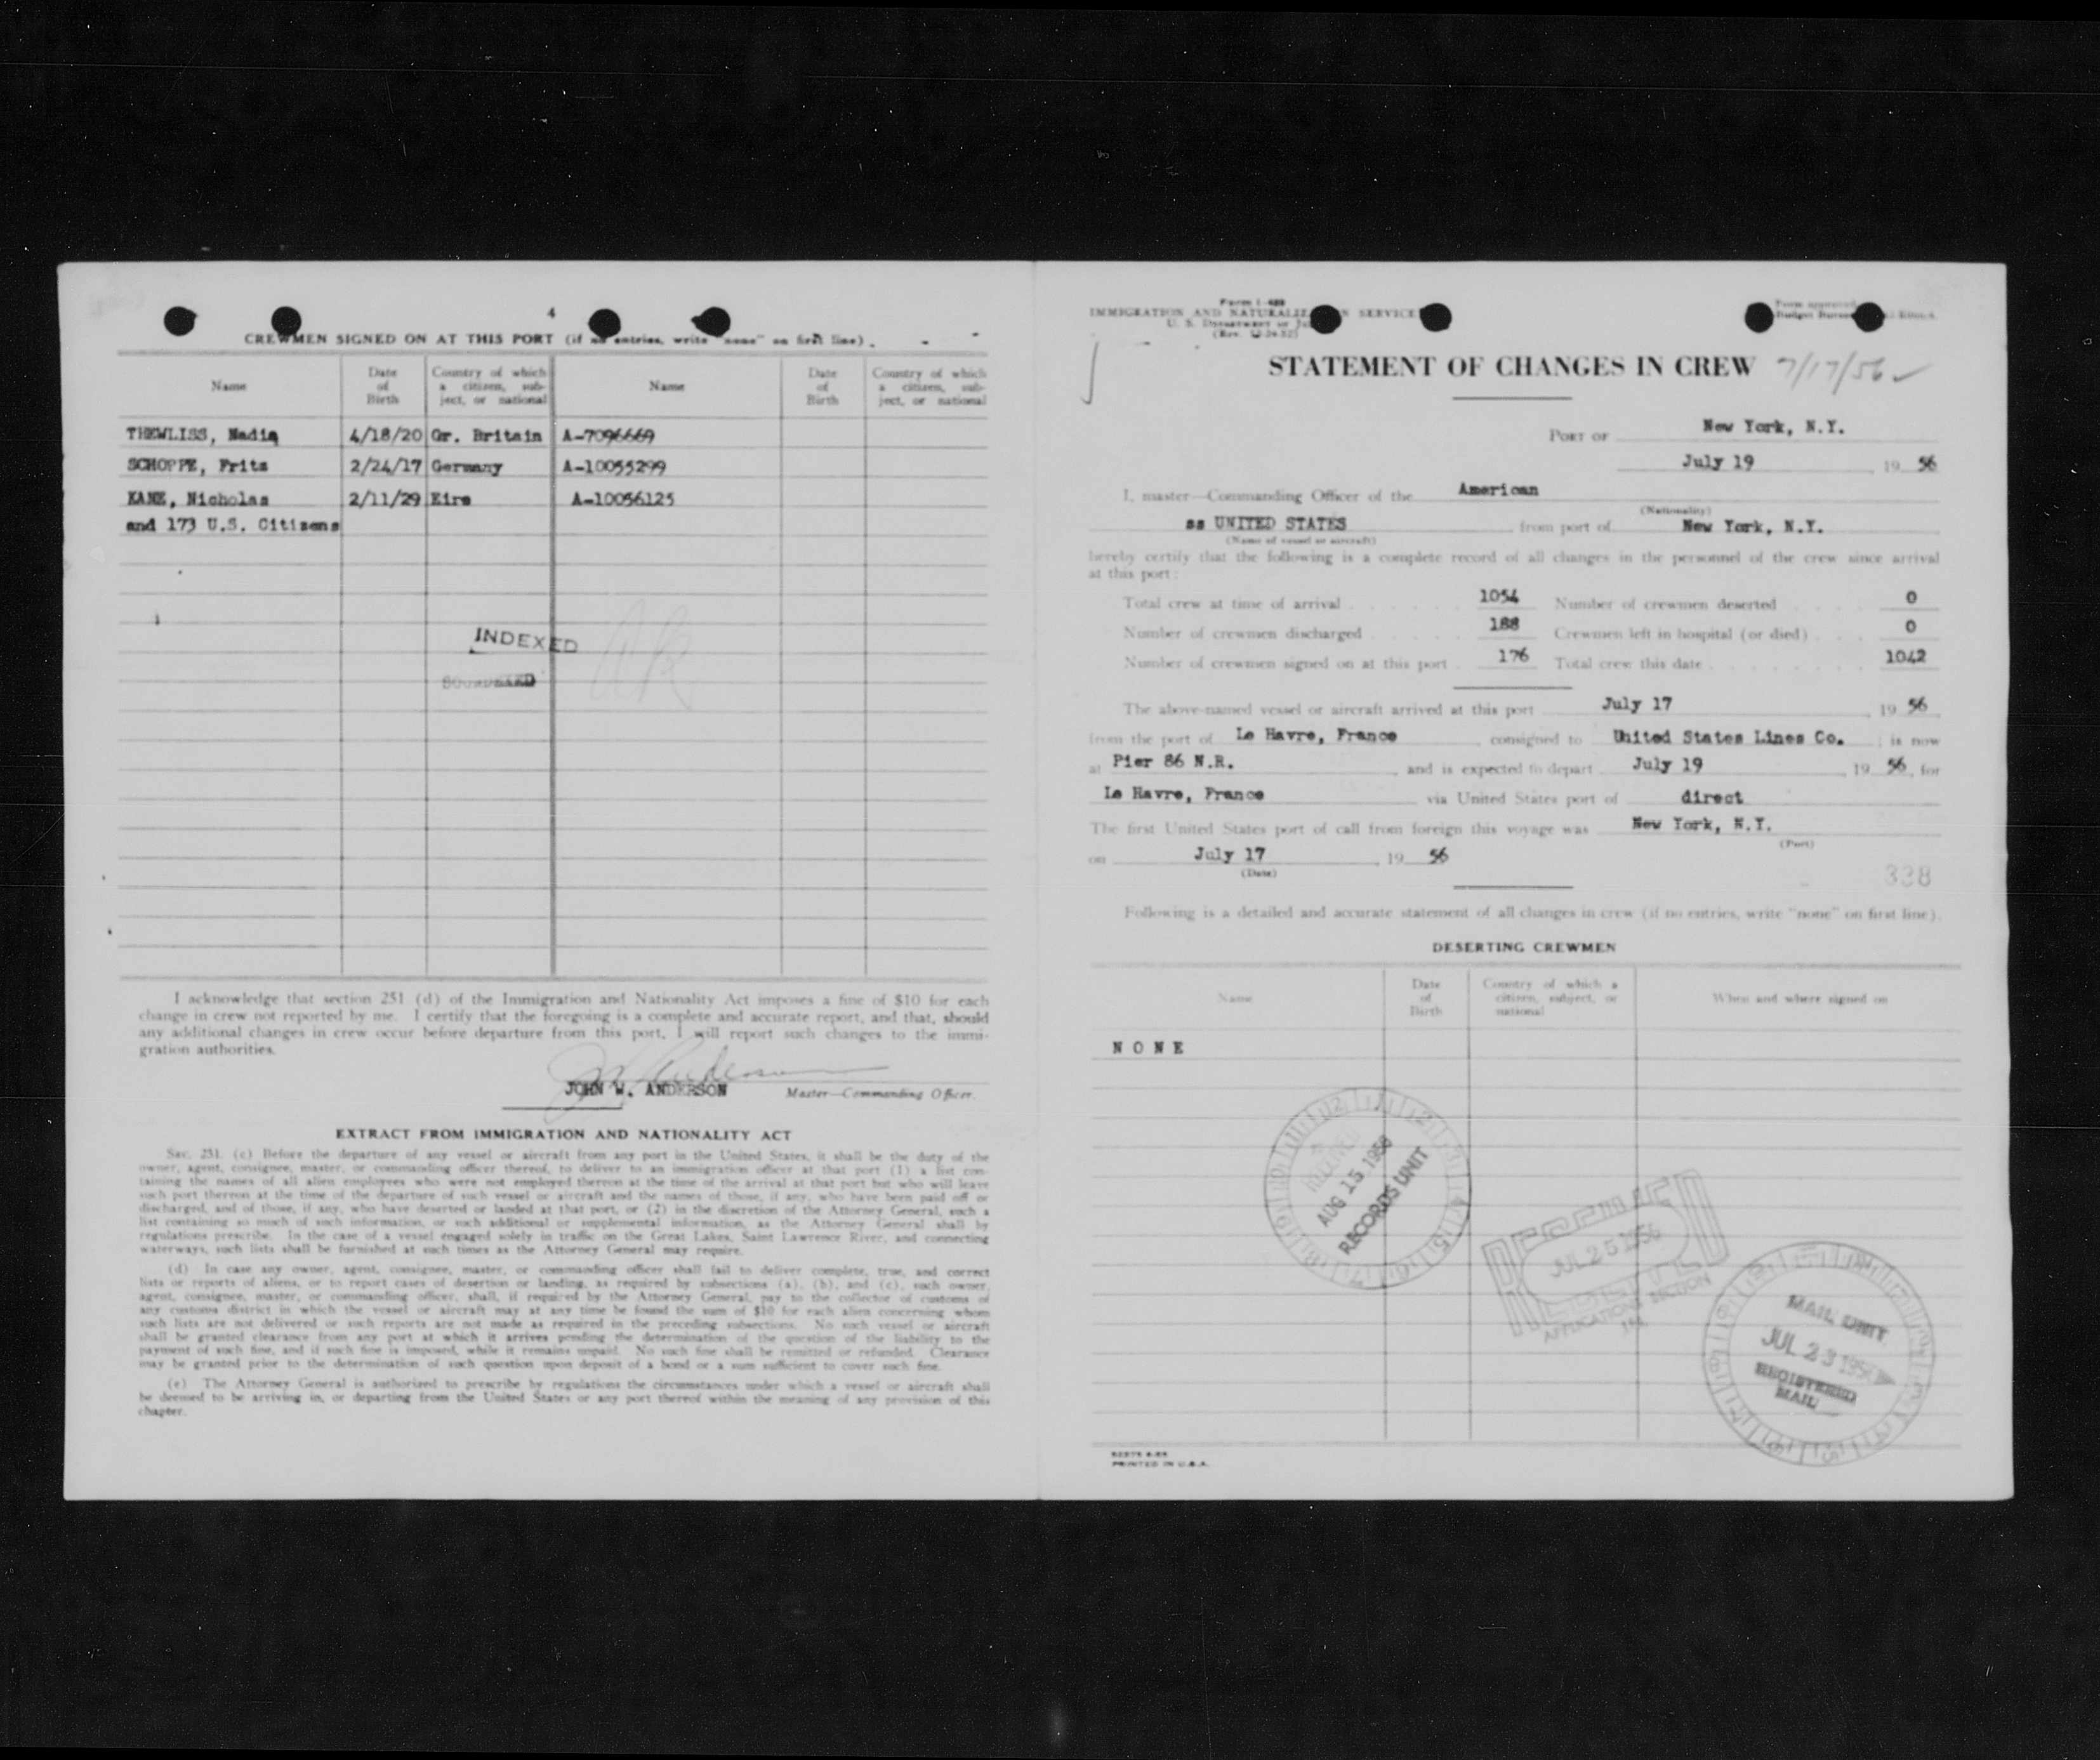 4
CREWMEN SIGNED ON AT THIS PORT (if no entries, write "none" on first line)
Name Date of Birth Country of which a citizen, subject, or national Name Date of Birth Country of which a citizen, subject, or national
THEWLISS, Nadia 4/18/20 Gr. Britain A-7096669
SCHOPPE, Fritz 2/24/17 Germany A-10055299
KANE, Nicholas 2/11/29 Eire A-10056125
and 173 U.S. Citizens
INDEXED
I acknowledge that section 251 (d) of the Immigration and Nationality Act imposes a fine of $10 for each
change in crew not reported by me. I certify that the foregoing is a complete and accurate report, and that, should
any additional changes in crew occur before departure from this port, I will report such changes to the immi-
gration authorities.
JOHN W. ANDERSON Master—Commanding Officer.
EXTRACT FROM IMMIGRATION AND NATIONALITY ACT
Sec. 251. (c) Before the departure of any vessel or aircraft from any port in the United States, it shall be the duty of the
owner, agent, consignee, master, or commanding officer thereof, to deliver to an immigration officer at that port (1) a list con-
taining the names of all alien employees who were not employed thereon at the time of the arrival at that port but who will leave
such port thereon at the time of the departure of such vessel or aircraft and the names of those, if any, who have been paid off or
discharged, and of those, if any, who have deserted or landed at that port, or (2) in the discretion of the Attorney General, such a
list containing so much of such information, or such additional or supplemental information, as the Attorney General shall by
regulations prescribe. In the case of a vessel engaged solely in traffic on the Great Lakes, Saint Lawrence River, and connecting
waterways, such lists shall be furnished at such times as the Attorney General may require.
(d) In case any owner, agent, consignee, master, or commanding officer shall fail to deliver complete, true, and correct
lists or reports of aliens, or to report cases of desertion or landing, as required by subsections (a), (b), and (c), such owner,
agent, consignee, master, or commanding officer, shall, if required by the Attorney General, pay to the collector of customs of
any customs district in which the vessel or aircraft may at any time be found the sum of $10 for each alien concerning whom
such lists are not delivered or such reports are not made as required in the preceding subsections. No such vessel or aircraft
shall be granted clearance from any port at which it arrives pending the determination of the question of the liability to the
payment of such fine, and if such fine is imposed, while it remains unpaid. No such fine shall be remitted or refunded. Clearance
may be granted prior to the determination of such question upon deposit of a bond or a sum sufficient to cover such fine.
(e) The Attorney General is authorized to prescribe by regulations the circumstances under which a vessel or aircraft shall
be deemed to be arriving in, or departing from the United States or any port thereof within the meaning of any provision of this
chapter.
Form I-489
IMMIGRATION AND SERVICE
U. S. Department of
STATEMENT OF CHANGES IN CREW 7/17/56
Port of New York, N.Y.
July 19 19 56
I, master—Commanding Officer of the American
(Nationality)
ss UNITED STATES from port of New York, N.Y.
(Name of vessel or aircraft)
hereby certify that the following is a complete record of all changes in the personnel of the crew since arrival
at this port:
Total crew at time of arrival 1054 Number of crewmen deserted 0
Number of crewmen discharged 188 Crewmen left in hospital (or died) 0
Number of crewmen signed on at this port 176 Total crew this date 1042
The above-named vessel or aircraft arrived at this port July 17 19 56
from the port of Le Havre, France consigned to United States Lines Co. ; is now
at Pier 86 N.R. and is expected to depart July 19 19 56, for
Le Havre, France via United States port of direct
The first United States port of call from foreign this voyage was New York, N.Y.
(Port)
on July 17 19 56
(Date)
338
Following is a detailed and accurate statement of all changes in crew (if no entries, write "none" on first line).
DESERTING CREWMEN
Name Date of Birth Country of which a citizen, subject, or national When and where signed on
NONE
RECEIVED
AUG 15 1956
RECORDS UNIT
RECEIVED
JUL 25 1956
APPLICATIONS SECTION
MAIL UNIT
JUL 23 1956
REGISTERED
MAIL
PRINTED IN U.S.A.